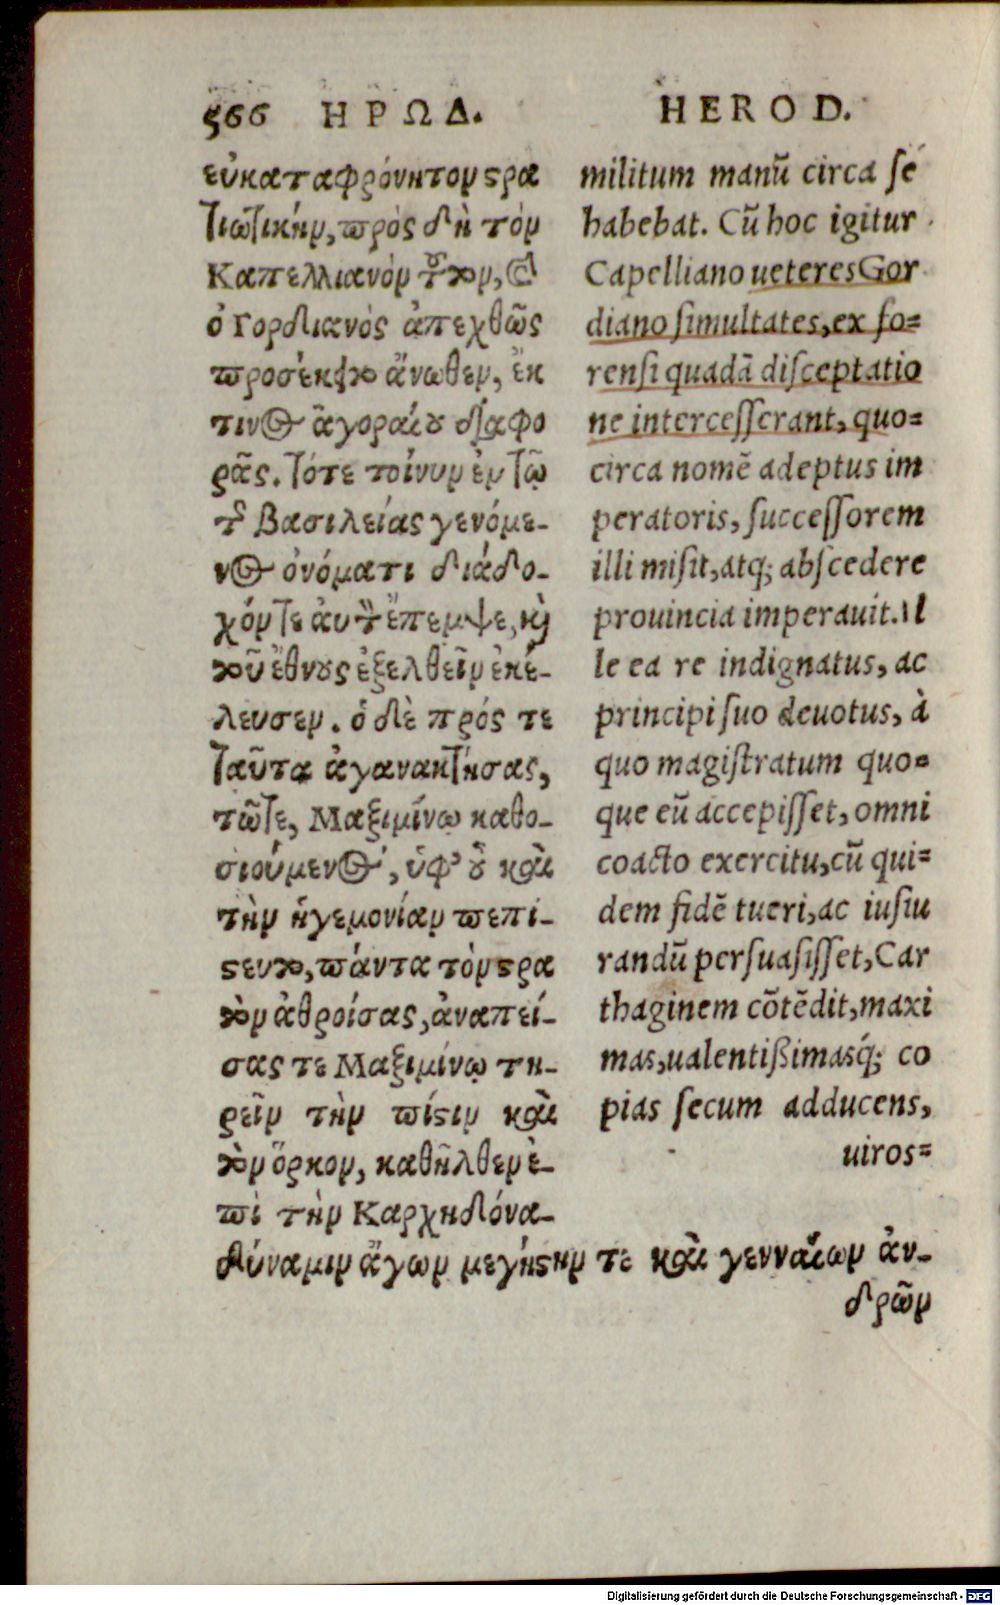 566 ΗΡΩΔ.
εὐκαταφρόνητον στρα
τιωτικήν, πρὸς δὴ τὸν
Καπελλιανὸν τοῦτον, καὶ
ὁ Γορδιανὸς ἀπεχθῶς
προσέκειτο ἄνωθεν, ἔκ
τινος ἀγοραίου διαφο
ρᾶς. τότε τοίνυν ἐν τῷ
τῆς βασιλείας γενόμε-
νος ὀνόματι διάδο-
χόν τε ἀυτῷ ἔπεμψε, καὶ
τοῦ ἔθνους ἐξελθεῖν ἐκέ-
λευσεν. ὁ δὲ πρός τε
ταῦτα ἀγανακτήσας,
τῷτε, Μαξιμίνῳ καθο-
σιούμενος, ὑφ' οὗ καὶ
τὴν ἡγεμονίαν πεπί-
στευτο, πάντα τὸν στρα
τὸν ἀθροίσας, ἀναπεί-
σας τε Μαξιμίνῳ τη-
ρεῖν τὴν πίστιν καὶ
τὸν ὅρκον, καθῆλθεν ἐ-
πὶ τὴν Καρχηδόνα-
δύναμιν ἄγων μεγίστην τε καὶ γενναίων ἀν-
δρῶν
HEROD.
militum manū circa se
habebat. Cū hoc igitur
Capelliano ueteres Gor
diano simultates, ex fo=
rensi quadā disceptatio
ne intercesserant, quo=
circa nomē adeptus im
peratoris, successorem
illi misit, atq; abscedere
prouincia imperauit. Il
le ea re indignatus, ac
principi suo deuotus, à
quo magistratum quo=
que eū accepisset, omni
coacto exercitu, cū qui=
dem fidē tueri, ac iusiu
randū persuasisset, Car
thaginem cōtēdit, maxi
mas, ualentißimasq́; co
pias secum adducens,
uiros=
Digitalisierung gefördert durch die Deutsche Forschungsgemeinschaft - DFG